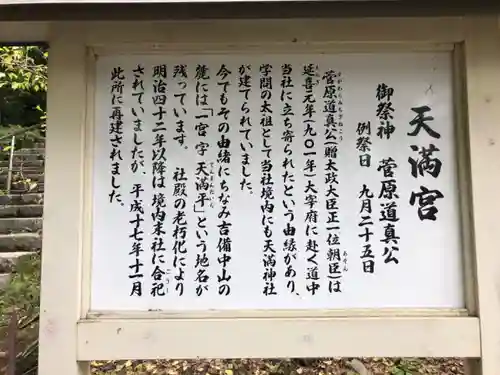 天満宮
御祭神 菅原道真公
例祭日 九月二十五日
菅原道真公(贈太政大臣正一位朝臣)は
延喜元年(九〇一年)大宰府に赴く道中
当社に立ち寄られたという由緒があり、
学問の太祖として当社境内にも天満神社
が建てられていました。
今でもその由緒にちなみ吉備中山の
麓には「一宮 字 天満平」という地名が
残っています。 社殿の老朽化により
明治四十二年以降は境内末社に合祀
されていましたが、平成十七年十一月
此所に再建されました。